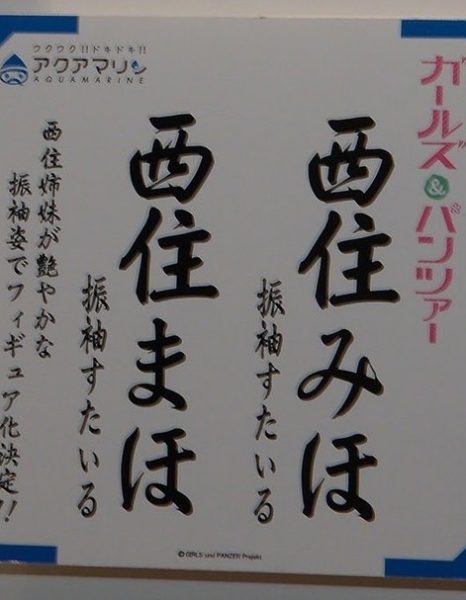 ガールズ&パンツァー
西住みほ
振袖すたいる
西住まほ
振袖すたいる
ワクワク!!ドキドキ!!
アクアマリン
AQUAMARINE
西住姉妹が艶やかな
振袖姿でフィギュア化決定!!
© GIRLS und PANZER Projekt